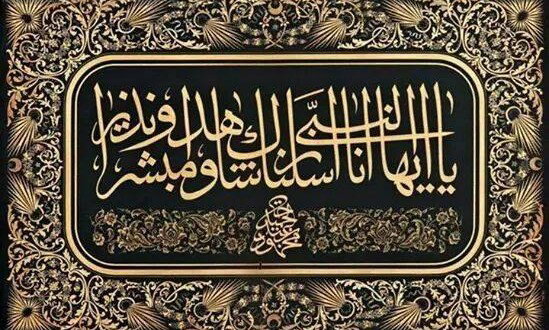 يا ايها النبي انا ارسلناك شاهدا ومبشرا ونذيرا